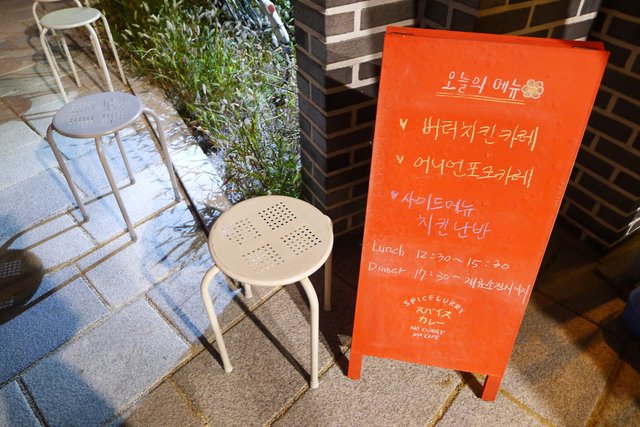 오늘의 메뉴
버터치킨카레
어니언포크카레
사이드메뉴
치킨난반
Lunch 12:30~15:30
Dinner 17:30~재료소진시까지
SPICE CURRY
スパイス
カレー
NO CURRY
NO LIFE